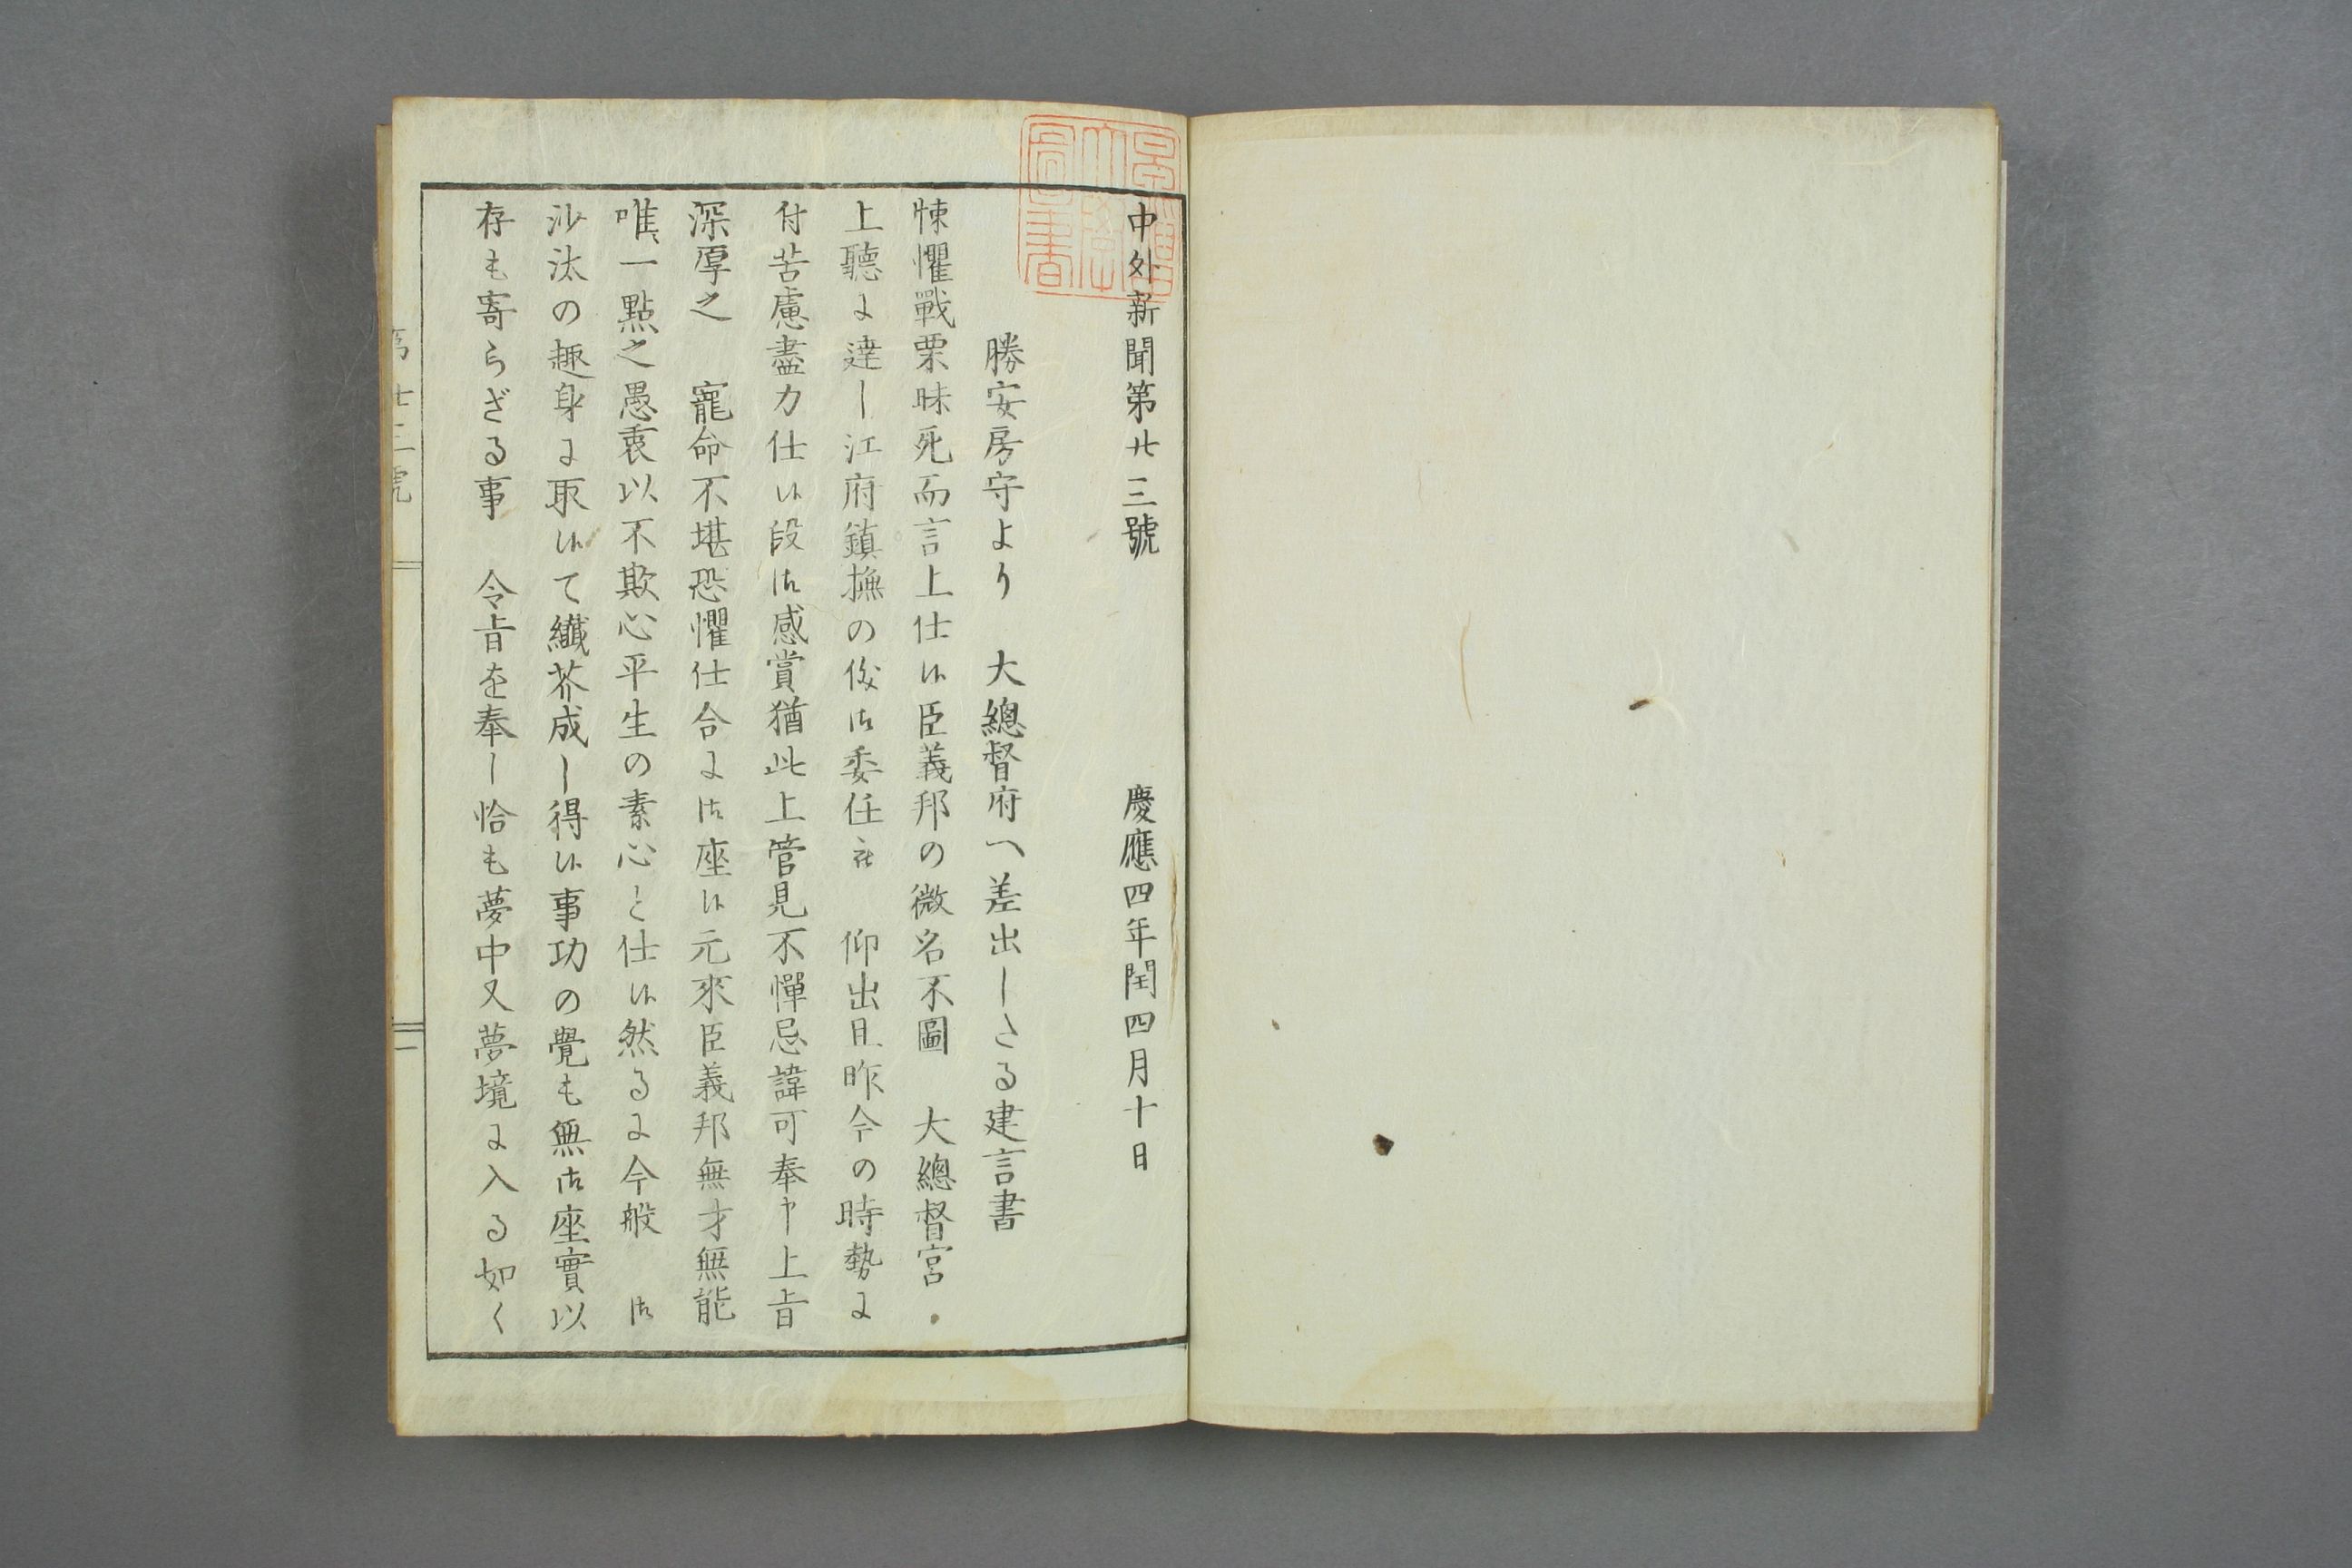 中外新聞第廿三號　慶應四年閏四月十日
勝安房守より　大總督府へ差出したる建言書
悚懼戰栗昧死而言上仕候臣義邦の微名不圖　大總督宮
上聽に達し江府鎮撫の儀御委任被　仰出且昨今の時勢に
付苦慮盡力仕候段御感賞猶此上管見不憚忌諱可奉申上旨
深厚之　寵命不堪恐懼仕合に御座候元來臣義邦無才無能
唯一點之愚衷以不欺心平生の素心と仕候然るに今般　御
沙汰の趣身に取候て纖芥成し得候事功の覺も無御座實以
存も寄らざる事　令旨を奉し恰も夢中又夢境に入る如く
第廿三號
一